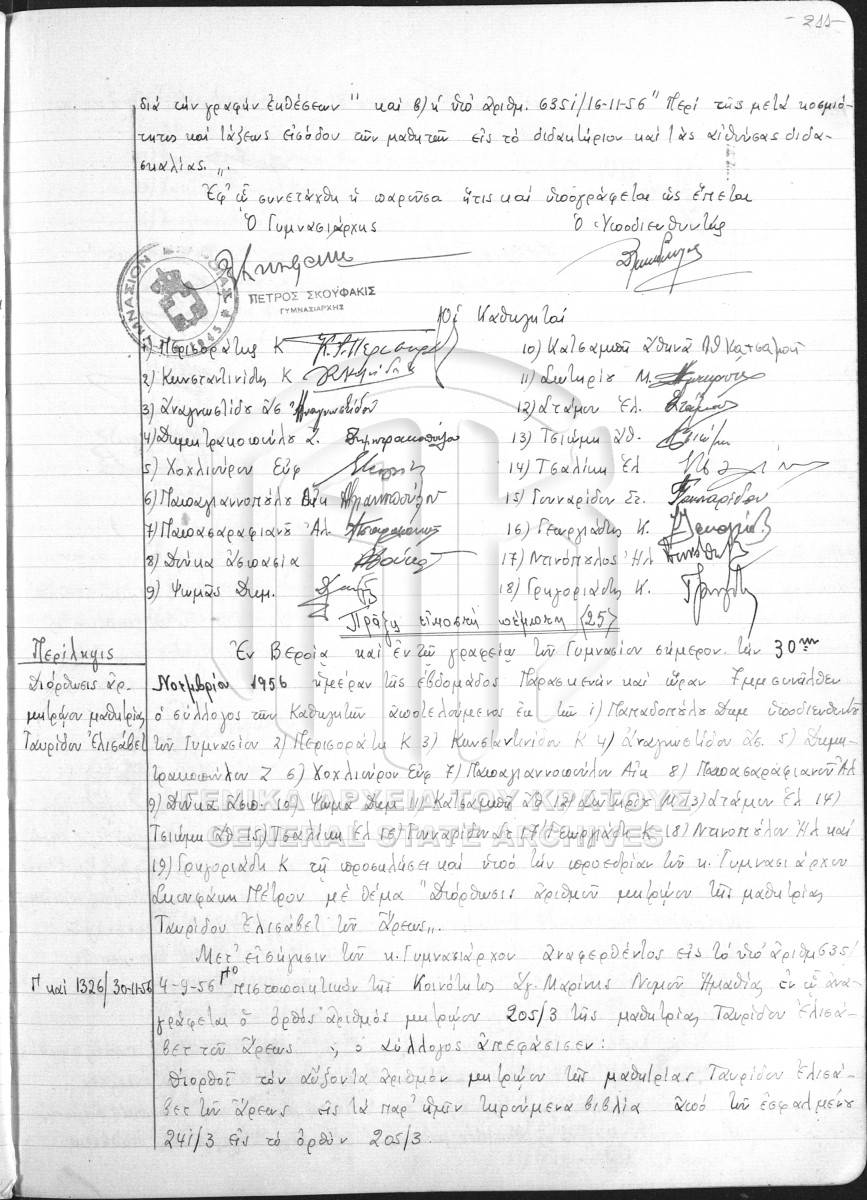 - 211 -
διά τήν γραφήν ἐκθέσεων" καί β) ἡ ὑπό ἀριθμ. 6351/16-11-56 "Περί τῆς μετά κοσμιό-
τητος καί τάξεως εἰσόδου τῶν μαθητῶν εἰς τό διδακτήριον καί τάς αἰθούσας διδα-
σκαλίας.„.
Ἐφ' ᾧ συνετάχθη ἡ παροῦσα ἥτις καί ὑπογράφεται ὡς ἕπεται
Ὁ Γυμνασιάρχης Ὁ Ὑποδιευθυντής
ΠΕΤΡΟΣ ΣΚΟΥΦΑΚΙΣ
ΓΥΜΝΑΣΙΑΡΧΗΣ
Οἱ Καθηγηταί
1) Περισοράτης Κ
2) Κωνσταντινίδης Κ
3) Ἀναγνωστίδου Ἀσ Ἀναγνωστίδου
4) Δημητρακοπούλου Ζ. Δημητρακοπούλου
5) Χοχλιούρου Εὐφ
6) Παπαγιαννοπούλου Αἰκ
7) Παπασαραφιανοῦ Ἀλ
8) Δούκα Ἀσπασία
9) Ψωμᾶς Δημ.
10) Κατσαμπῆ Ἀθηνᾶ Ἀθ Κατσαμπῆ
11) Σωτηρίου Μ.
12) Στάμου Ἑλ. Στάμου
13) Τσιώμη Ἀθ. Τσιώμη
14) Τσαλίκη Ἑλ
15) Γουναρίδου Στ. Γουναρίδου
16) Γεωργιάδης Κ.
17) Ντινόπουλος Ἠλ
18) Γρηγοριάδης Κ.
Πρᾶξις εἰκοστή πέμπτη (25)
Περίληψις
Διόρθωσις ἀρ.
μητρώου μαθητρίας
Ταυρίδου Ἐλισάβετ
Ἐν Βεροίᾳ καί ἐν τῷ γραφείῳ τοῦ Γυμνασίου σήμερον τήν 30ην
Νοεμβρίου 1956 ἡμέραν τῆς ἑβδομάδος Παρασκευήν καί ὥραν 7μμ συνῆλθεν
ὁ σύλλογος τῶν Καθηγητῶν ἀποτελούμενος ἐκ τῶν 1) Παπαδοπούλου Δημ ὑποδιευθυντοῦ
τοῦ Γυμνασίου 2) Περισοράτη Κ 3) Κωνσταντινίδου Κ 4) Ἀναγνωστίδου Ἀσ. 5) Δημη-
τρακοπούλου Ζ 6) Χοχλιούρου Εὐφ 7) Παπαγιαννοπούλου Αἰκ 8) Παπασαραφιανοῦ Ἀλ
9) Δούκα Ἀσπ. 10) Ψωμᾶ Δημ 11) Κατσαμπῆ Ἀθ 12) Σωτηρίου Μ 13) Στάμου Ἑλ 14)
Τσιώμη Ἀθ 15) Τσαλίκη Ἑλ 16) Γουναρίδου Στ 17) Γεωργιάδη Κ 18) Ντινοπούλου Ἠλ καί
19) Γρηγοριάδη Κ τῇ προσκλήσει καί ὑπό τήν προεδρίαν τοῦ κ. Γυμνασιάρχου
Σκουφάκη Πέτρου μέ θέμα "Διόρθωσις ἀριθμοῦ μητρώου τῆς μαθητρίας
Ταυρίδου Ἐλισάβετ τοῦ Ἄρεως„.
Μετ' εἰσήγησιν τοῦ κ. Γυμνασιάρχου ἀναφερθέντος εἰς τό ὑπό ἀριθμ 535/
Π καί 1326/30-11-56
4-9-56 πιστοποιητικόν τῆς Κοινότητος Ἁγ. Μαρίνης Νομοῦ Ἠμαθίας ἐν ᾧ ἀνα-
γράφεται ὁ ὀρθός ἀριθμός μητρώου 205/3 τῆς μαθητρίας Ταυρίδου Ἐλισά-
βετ τοῦ Ἄρεως, ὁ Σύλλογος ἀπεφάσισεν:
Διορθοῖ τόν αὔξοντα ἀριθμόν μητρώου τῆς μαθητρίας Ταυρίδου Ἐλισά-
βετ τοῦ Ἄρεως εἰς τά παρ' ἡμῖν τηρούμενα βιβλία ἀπό τοῦ ἐσφαλμένου
241/3 εἰς τό ὀρθόν 205/3.
ΓΕΝΙΚΑ ΑΡΧΕΙΑ ΤΟΥ ΚΡΑΤΟΥΣ
GENERAL STATE ARCHIVES